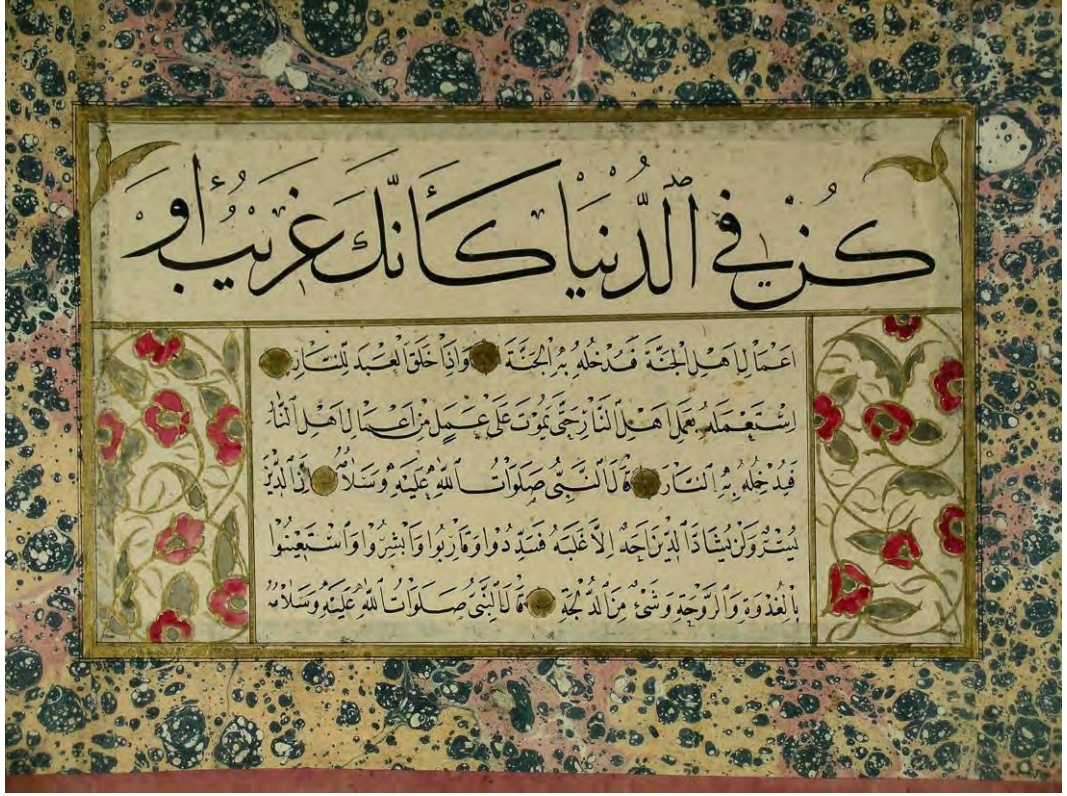 كُنْ فِي الدُّنْيَا كَأَنَّكَ غَرِيبٌ أَوْ
اَعْمَالِ اَهْلِ الْجَنَّةِ فَيُدْخِلُهُ بِهِ الْجَنَّةَ وَاِذَا خَلَقَ الْعَبْدَ لِلنَّارِ
اِسْتَعْمَلَهُ بِعَمَلِ اَهْلِ النَّارِ حَتّٰى يَمُوتَ عَلٰى عَمَلٍ مِنْ اَعْمَالِ اَهْلِ النَّارِ
فَيُدْخِلُهُ بِهِ النَّارَ قَالَ النَّبِيُّ صَلَوَاتُ اللّٰهِ عَلَيْهِ وَسَلَامُهُ اِنَّ الدِّينَ
يُسْرٌ وَلَنْ يُشَادَّ الدِّينَ اَحَدٌ اِلَّا غَلَبَهُ فَسَدِّدُوا وَقَارِبُوا وَاَبْشِرُوا وَاسْتَعِينُوا
بِالْغُدْوَةِ وَالرَّوْحَةِ وَشَيْءٍ مِنَ الدُّلْجَةِ قَالَ النَّبِيُّ صَلَوَاتُ اللّٰهِ عَلَيْهِ وَسَلَامُهُ